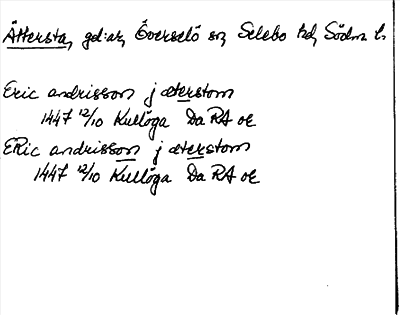 Ättersta, gd:ar, Överselö sn, Selebo hd, Södm. l.
Eric andrisson j æterstom
1447 12/10 Kullöga Da RA oE
ERic andrisson j æterstom
1447 12/10 Kullöga Da RA oE